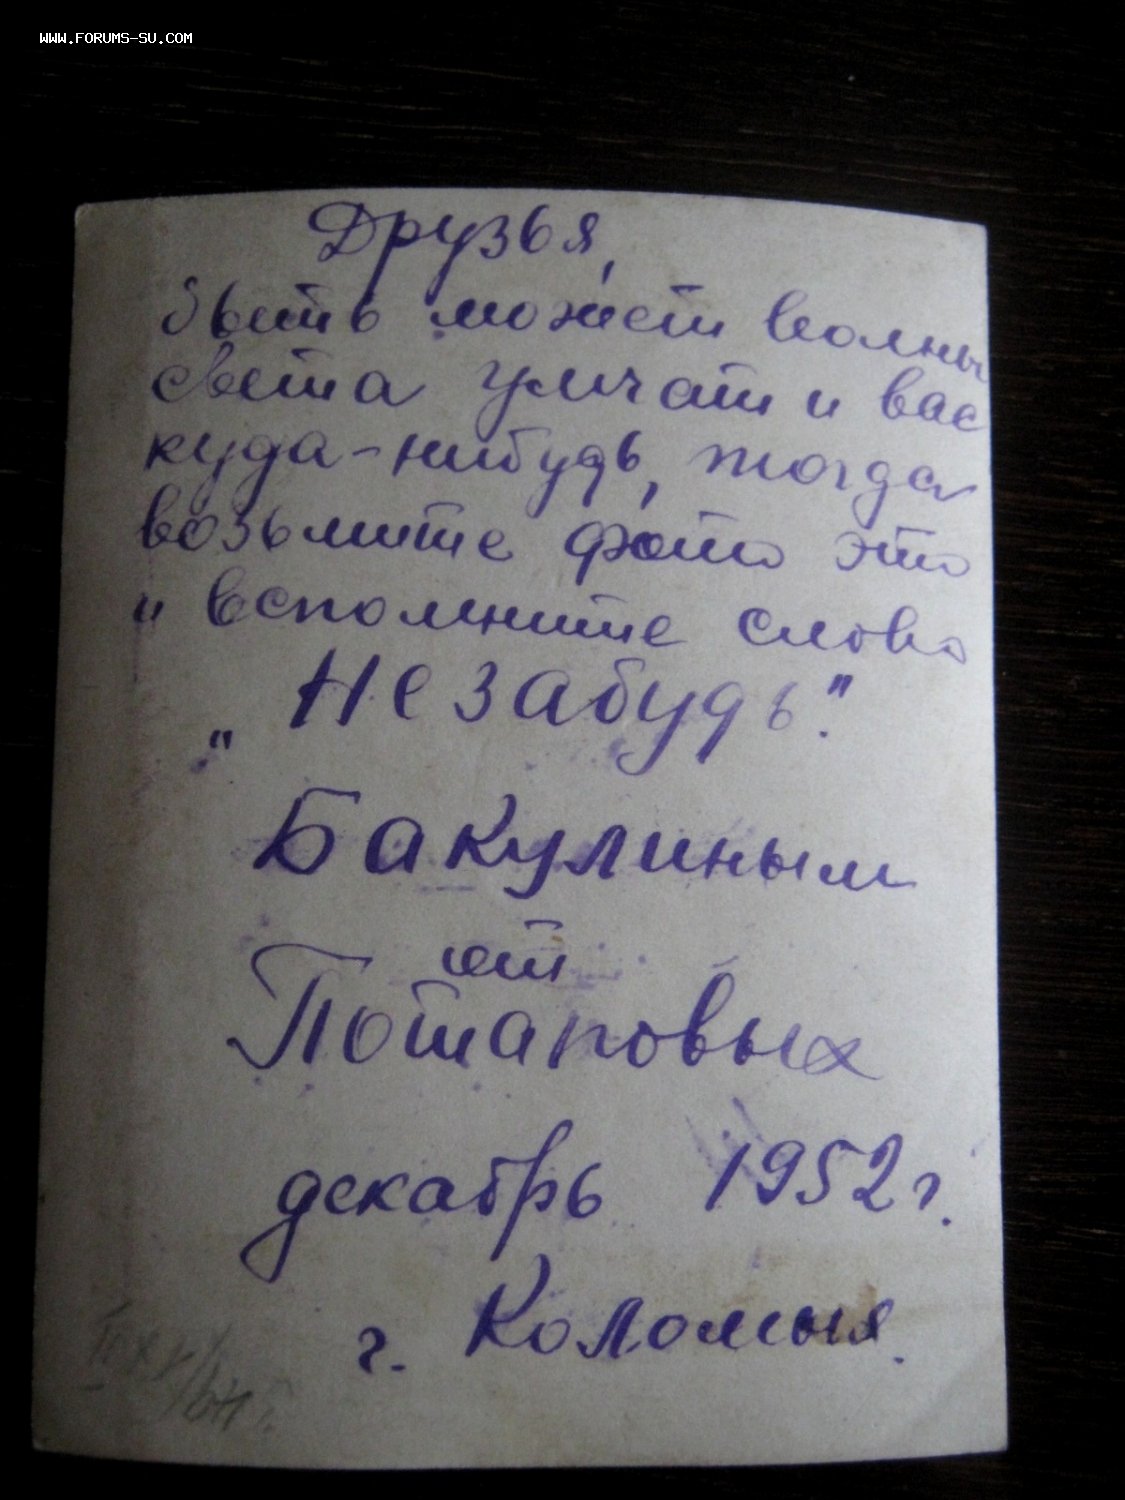 WWW.FORUMS-SU.COM
Друзья,
быть может волны
света умчат и вас
куда-нибудь, тогда
возьмите фото это
и вспомните слово
„Незабудь".
Бакулиным
от
Потаповых
декабрь 1952 г.
г. Коломыя.